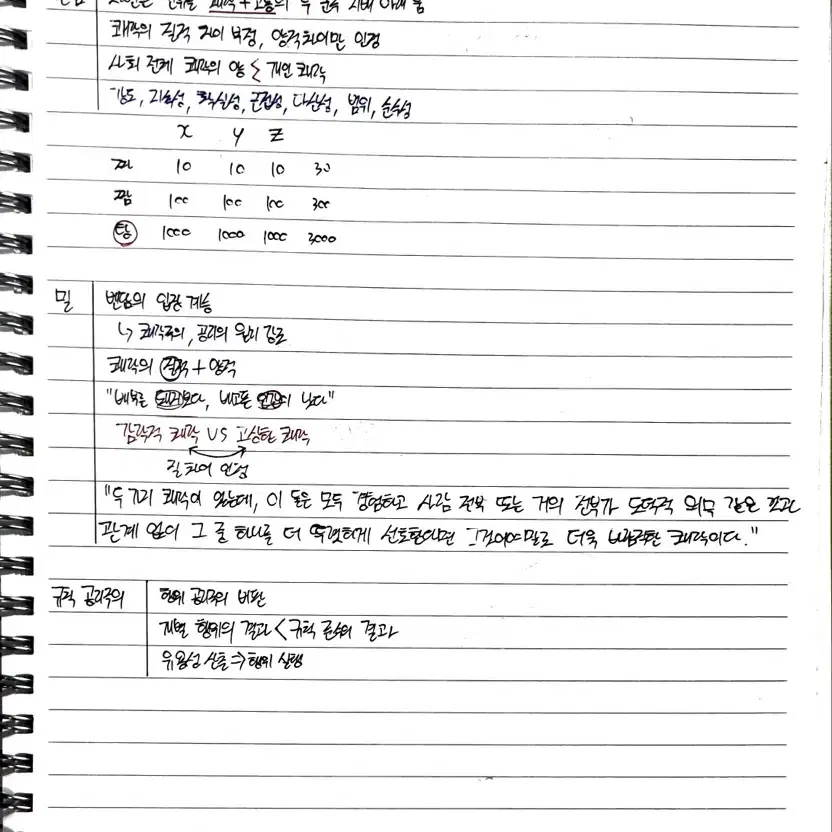 쾌락의 질적 차이 부정, 양적차이만 인정
사회 전체 쾌락의 양 < 개인 쾌락
강도, 지속성, 확실성, 근접성, 다산성, 범위, 순수성
x y z
10 10 10 30
짬 100 100 100 300
탕 1000 1000 1000 3000
밀 벤담의 입장 계승
↳ 쾌락주의, 공리의 원리 강조
쾌락의 질적 + 양적
"배부른 돼지보다, 배고픈 인간이 낫다"
감각적 쾌락 VS 고상한 쾌락
질 차이 인정
"두 가지 쾌락이 있는데, 이 둘을 모두 경험하고 사람 전부 또는 거의 전부가 도덕적 의무 같은 것과
관계 없이 그 중 하나를 더 뚜렷하게 선호한다면 그것이야말로 더욱 바람직한 쾌락이다."
규칙 공리주의 행위 공리주의 비판
개별 행위의 결과 < 규칙 준수의 결과
유용성 산출 ⇒ 행위 실행